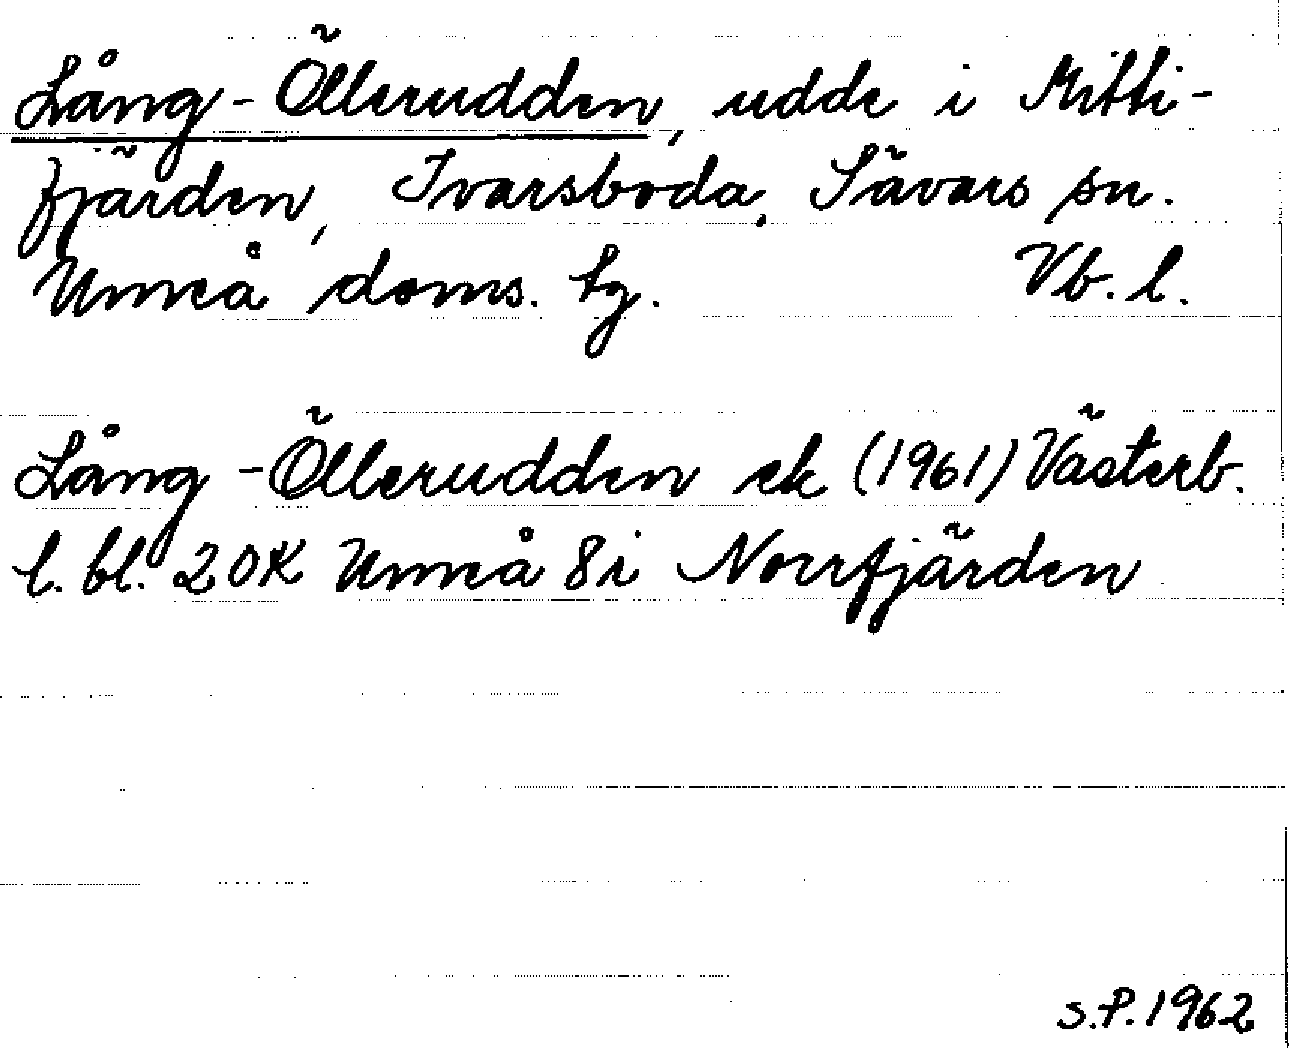 Lång-Öllerudden, udde i Mitti-
fjärden, Ivarsboda, Sävars sn.
Umeå doms. tg. Vb. l.
Lång-Öllerudden ek (1961) Västerb.
l. bl. 20K Umeå 8i Norrfjärden
S.P. 1962